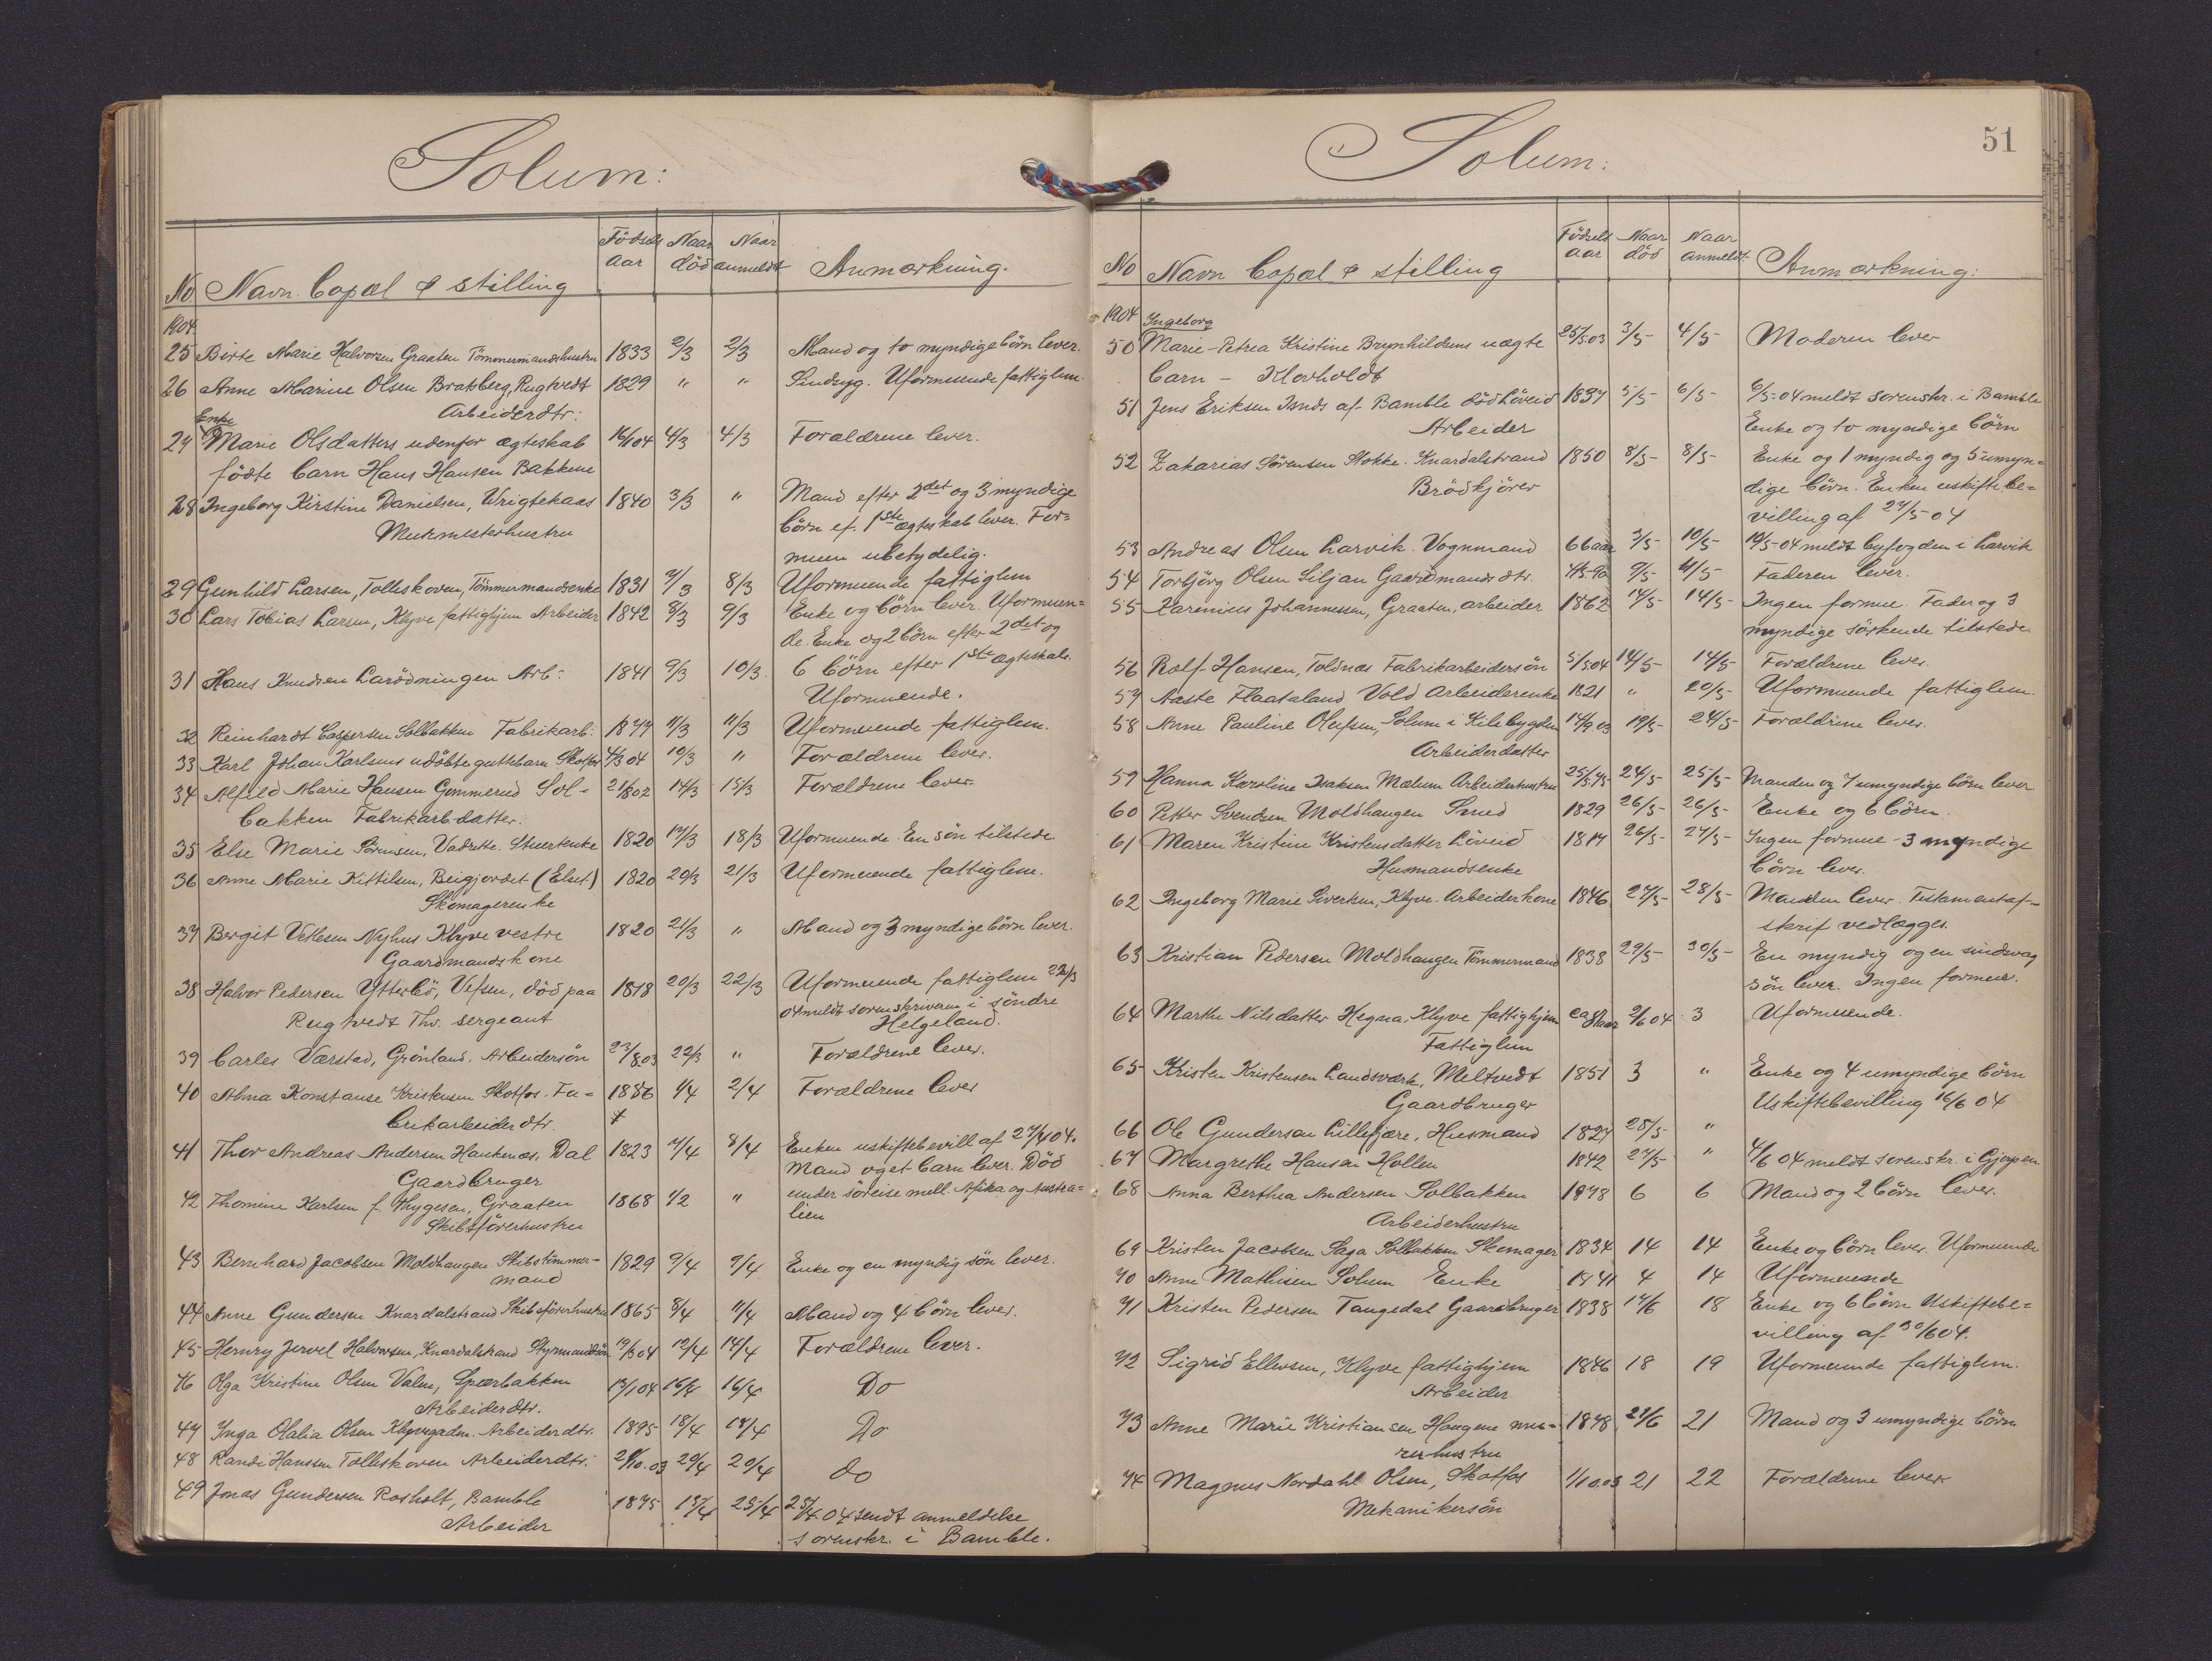 Solum:
No Navn Bopæl & stilling Födsels aar Naar död Naar anmeldt Anmærkning.
1904
25 Birte Marie Halvorsen Graaten Tömmermandshustru 1833 2/3 2/3 Mand og to myndige börn lever.
26 Anne Marine Olsen Bratsberg, Rugtvedt 1829 " " Sindsyg. Uformuende fattiglem.
Arbeiderdtr:
Enke
27 Marie Olsdatters udenfor ægteskab 16/1 04 4/3 4/3 Forældrene lever.
födte barn Hans Hansen Bakkene
28 Ingeborg Kirstine Danielsen, Wrigtekaas 1840 3/3 " Mand efter 2det og 3 myndige
Murmesterhustru börn ef. 1ste ægteskab lever. For=
muen ubetydelig.
29 Gunhild Larsen, Tolleskoven, Tömmermandsenke 1831 7/3 8/3 Uformuende fattiglem
30 Lars Tobias Larsen, Klyve fattighjem Arbeider 1842 8/3 9/3 Enke og börn lever. Uformuen=
de. Enke og 2 börn efter 2det og
31 Hans Knudsen Larödningen Arb: 1841 9/3 10/3. 6 börn efter 1ste ægteskab.
Uformuende.
32 Reinhardt Caspersen Solbakken Fabrikarb: 1877 11/3 11/3 Uformuende fattiglem.
33 Karl Johan Karlsens udöbte guttebarn Skotfos 4/3 04 10/3 " Forældrene lever.
34 Alfild Marie Hansen Gommerud Sol- 21/8 02 14/3 15/3 Forældrene lever
bakken Fabrikarb.datter.
35 Else Marie Sörensen, Vadrette. Stuertenke 1820 17/3 18/3 Uformuende. En sön tilstede
36 Anne Marie Kittilsen, Beigjordet (Elset) 1820 20/3 21/3 Uformuende fattiglem.
Skomagerenke
37 Bergit Vetlesen Nyhus Klyve vestre 1820 21/3 " Mand og 3 myndige börn lever.
Gaardmandskone
38 Halvor Pedersen Ytterbö, Vefsen, död paa 1818 20/3 22/3 Uformuende fattiglem 22/3
Rugtvedt Thv. sergeant 04 meldt sorenskriveren i söndre
Helgeland.
39 Carles Værstad, Grönland. Arbeidersön 23/8.03 22/3 " Forældrene lever.
40 Alma Konstanse Kristensen Skotfos. Fa= 1886 1/4 2/4 Forældrene lever
brikarbeiderdtr.
41 Thor Andreas Andersen Haukenæs, Dal 1823 7/4 8/4 Enken uskiftebevill af 27/4 04.
Gaardbruger Mand og et barn lever. Död
42 Thomine Karlsen f. Thygesen, Graaten 1868 1/2 " under söreise mell. Afika og Austra=
Skibsförerhustru lien
43 Bernhard Jacobsen Moldhaugen Skibstömmer- 1829 9/4 9/4 Enke og en myndig sön lever.
mand
44 Anne Gundersen Knardalstrand Skibsförerhustru 1865 8/4 11/4 Mand og 4 börn lever.
45 Hernry Jervel Halvorsen, Knardalstrand Styrmandssön 19/3 04 12/4 14/4 Forældrene lever.
46 Olga Kristine Olsen Valen, Sperbakken 13/1 04 16/4 16/4 Do
Arbeiderdtr.
47 Inga Olalia Olsen Klyvegaden. Arbeiderdtr. 1895 18/4 18/4 Do
48 Randi Hanssen Tolleskoven Arbeiderdtr. 21/10.03 20/4 20/4 do
49 Jonas Gundersen Rosholt, Bamble 1875 15/4 25/4 25/4.04 sendt anmeldelse
Arbeider sorenskr. i Bamble.
Solum:
51
No Navn Bopæl & stilling Födsels aar Naar död Naar anmeldt. Anmærkning:
1904 Ingeborg
50 Marie-Petrea Kristine Brynhildsens uægte 25/5 03 3/5- 4/5- Moderen lever
barn - Klovholdt
51 Jens Eriksen Isnds af Bamble död Löveid 1837 5/5- 6/5- 6/5-04 meldt sorenskr. i Bamble
Arbeider Enke og to myndige börn
52 Zakarias Sörensen Stokke. Knardalstrand 1850 8/5- 8/5- Enke og 1 myndig og 5 umyn=
Brödkjörer dige börn. Enken uskiftebe=
villing af 27/5-04
53 Andreas Olsen Larvik. Vognmand 66 aar 3/5- 10/5- 10/5-04 meldt byfogden i Larvik
54 Torbjörg Olsen Siljan Gaardmandsdtr. 4/5-90 9/5- 11/5- Faderen lever.
55 Karenius Johannessen, Graaten, arbeider 1862 14/5- 14/5- Ingen formue. Fader og 3
myndige söskende tilstede.
56 Rolf Hansen, Toldnæs Fabrikarbeidersön 5/5 04 14/5- 14/5- Forældrene lever.
57 Aaste Flaataland Vold Arbeiderenke 1821 " 20/5- Uformuende fattiglem.
58 Anne Pauline Olufsen, Solum i Kilebygden 14/9 03 19/5- 24/5 Forældrene lever.
Arbeiderdatter
59 Hanna Karoline Isaksen Mælum Arbeiderhustru 25/5.75 24/5- 25/5- Manden og 7 umyndige börn lever
60 Petter Svendsen Moldhaugen Smed 1829 26/5- 26/5- Enke og 6 börn.
61 Maren Kristine Kristensdatter Löveid 1817 26/5- 27/5- Ingen formue - 3 myndige
Husmandsenke börn lever.
62 Ingeborg Marie Sivertsen, Klyve. Arbeiderkone 1846 27/5- 28/5- Manden lever. Testamentaf-
skrif vedlægges.
63 Kristian Pedersen Moldhaugen Tömmermand 1838 29/5- 30/5- En myndig og en sindsvag
sön lever. Ingen formue.
64 Marthe Nilsdatter Hegna. Klyve fattighjem 2/6 04 3 Uformuende.
Fattiglem
65 Kristen Kristensen Landsværk, Meltvedt 1851 3 " Enke og 4 umyndige börn
Gaardbruger Uskiftebevilling 16/6 04
66 Ole Gundersen Lillekjære, Husmand 1827 28/5 "
67 Margrethe Hansen Hollen 1842 27/5- " 4/6 04 meldt sorenskr. i Gjerpen
68 Anna Berthea Andersen Solbakken 1878 6 6 Mand og 2 börn lever.
Arbeiderhustru
69 Kristen Jacobsen Saga Solbakken Skomager 1834 14 14 Enke og börn lever. Uformuende
70 Anne Mathisen Solum Enke 1841 4 14 Uformuende
71 Kristen Pedersen Tangedal Gaardbruger 1838 17/6 18 Enke og 6 börn Uskiftebe=
villing af 30/6 04.
72 Sigrid Ellevsen, Klyve fattighjem 1846 18 19 Uformuende fattiglem.
Arbeider
73 Anne Marie Kristiansen Haugene mu= 1878 21/6 21 Mand og 3 umyndige börn
rerhustru
74 Magnus Nordahl Olsen, Skotfos 1/10.03 21 22 Forældrene lever
Mekanikersön